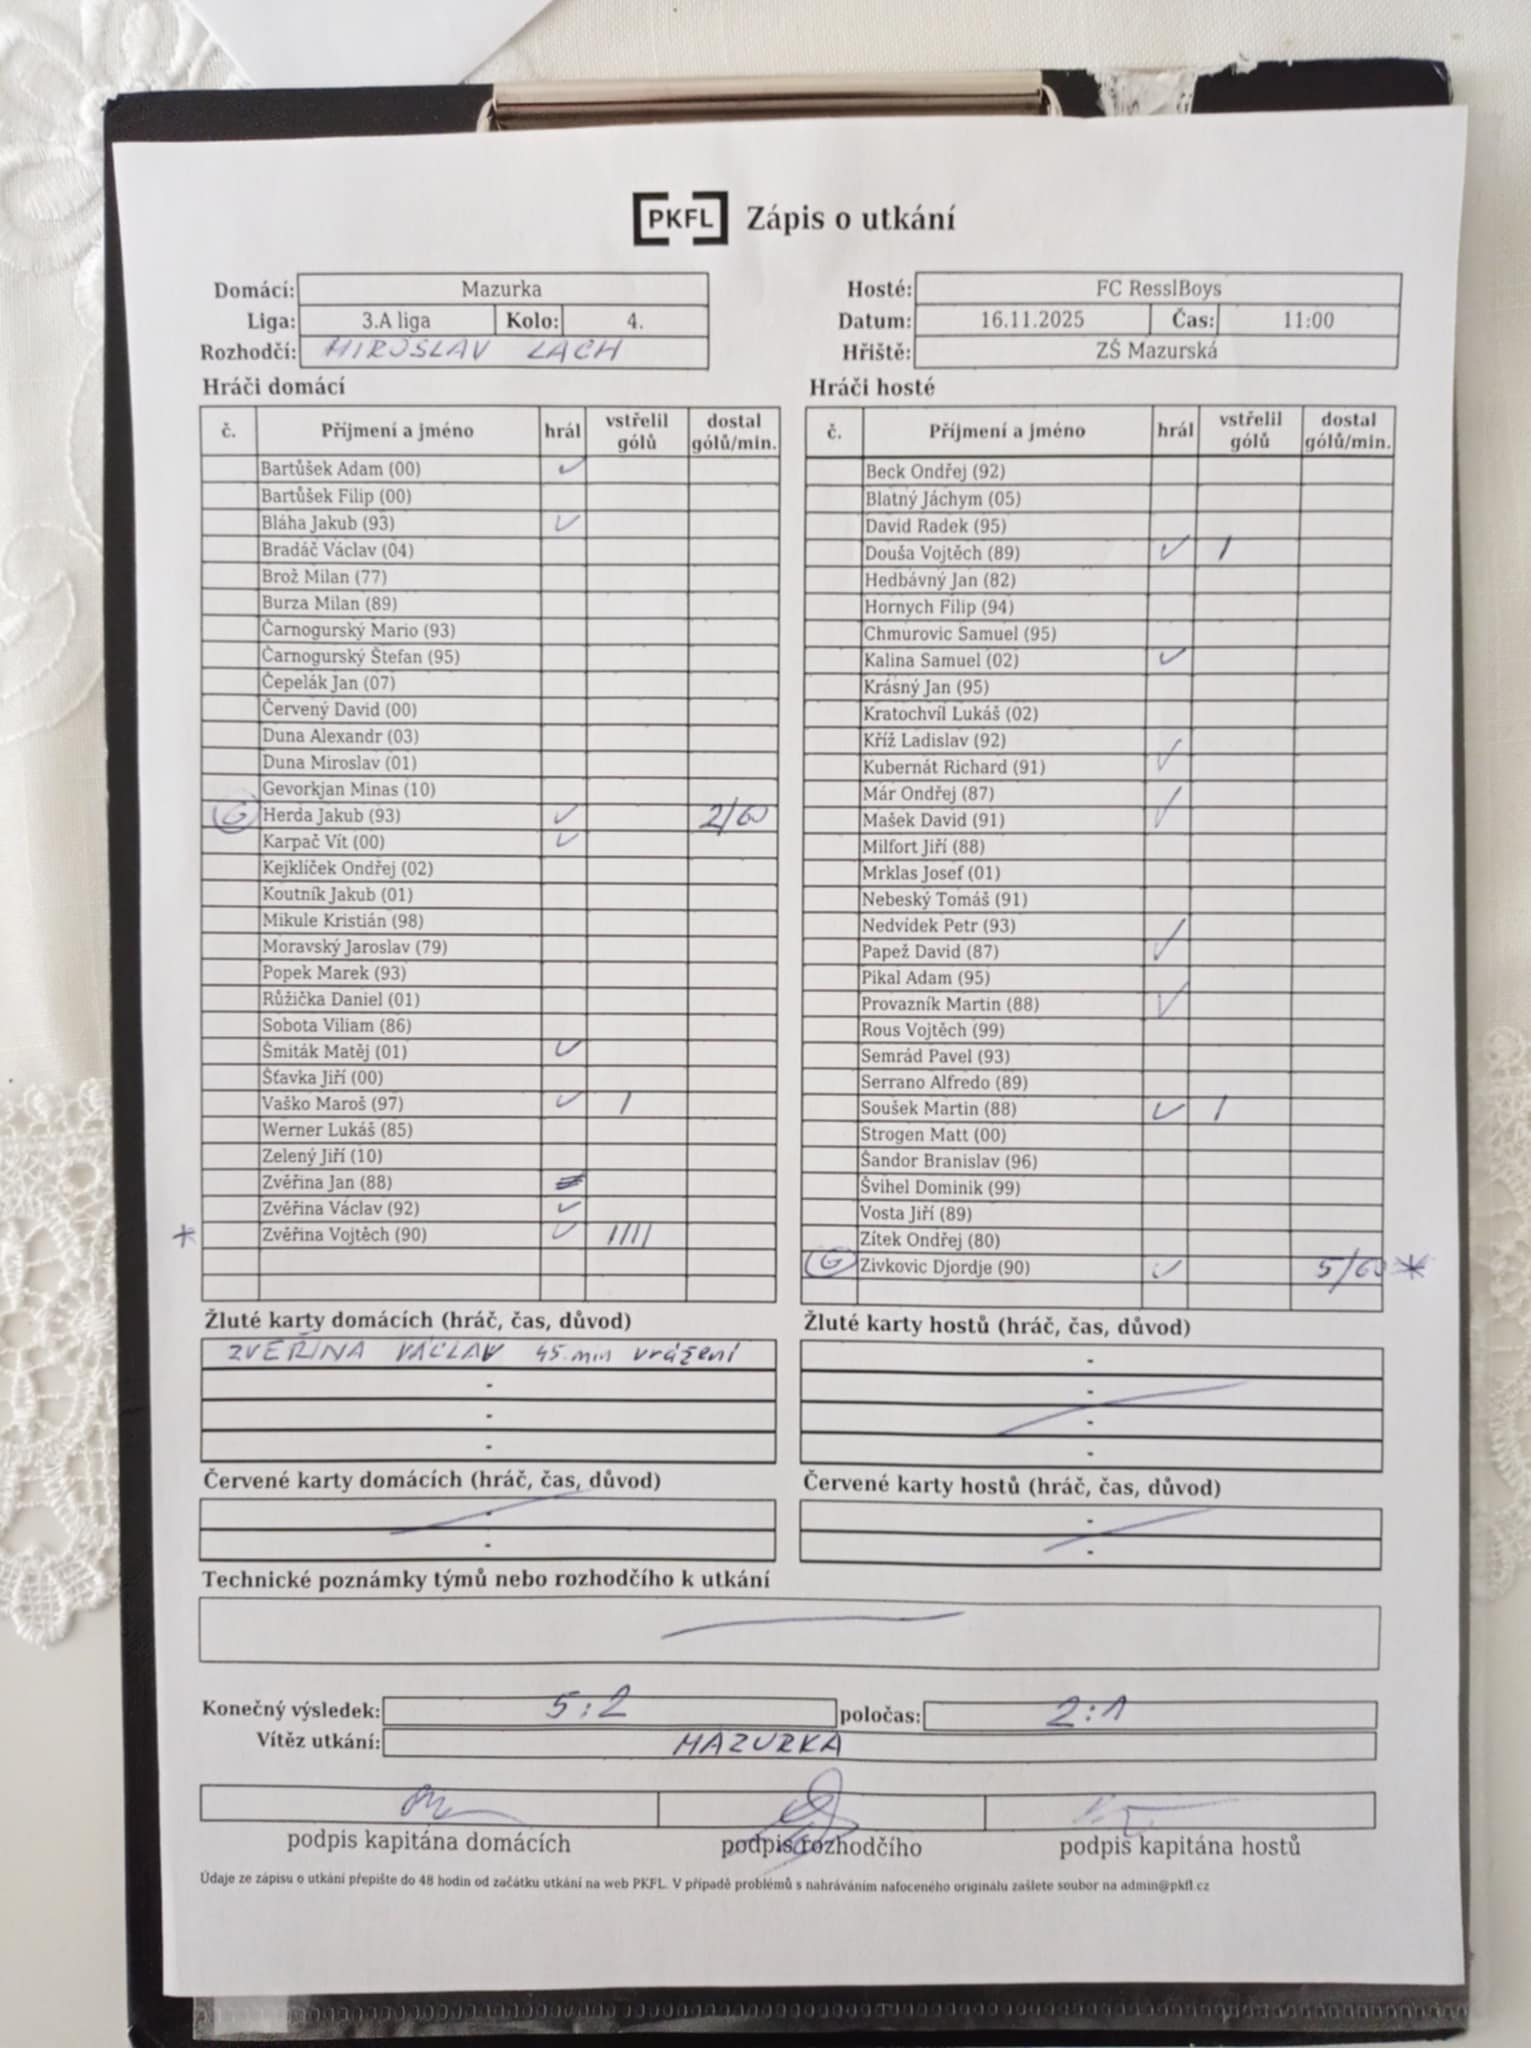 PKFL Zápis o utkání
Domácí: Mazurka Hosté: FC ResslBoys
Liga: 3.A liga Kolo: 4. Datum: 16.11.2025 Čas: 11:00
Rozhodčí: MIROSLAV LACH Hřiště: ZŠ Mazurská
Hráči domácí
č. Příjmení a jméno hrál vstřelil gólů dostal gólů/min.
Bartůšek Adam (00) ✓
Bartůšek Filip (00)
Bláha Jakub (93) ✓
Bradáč Václav (04)
Brož Milan (77)
Burza Milan (89)
Čarnogurský Mario (93)
Čarnogurský Štefan (95)
Čepelák Jan (07)
Červený David (00)
Duna Alexandr (03)
Duna Miroslav (01)
Gevorkjan Minas (10)
G Herda Jakub (93) ✓ 2/60
Karpač Vít (00) ✓
Kejklíček Ondřej (02)
Koutník Jakub (01)
Mikule Kristián (98)
Moravský Jaroslav (79)
Popek Marek (93)
Růžička Daniel (01)
Sobota Viliam (86)
Šmiták Matěj (01) ✓
Šťavka Jiří (00)
Vaško Maroš (97) ✓ I
Werner Lukáš (85)
Zelený Jiří (10)
Zvěřina Jan (88)
Zvěřina Václav (92) ✓
* Zvěřina Vojtěch (90) ✓ IIII
Hráči hosté
č. Příjmení a jméno hrál vstřelil gólů dostal gólů/min.
Beck Ondřej (92)
Blatný Jáchym (05)
David Radek (95)
Douša Vojtěch (89) ✓ I
Hedbávný Jan (82)
Hornych Filip (94)
Chmurovic Samuel (95)
Kalina Samuel (02) ✓
Krásný Jan (95)
Kratochvíl Lukáš (02)
Kříž Ladislav (92)
Kubernát Richard (91) ✓
Már Ondřej (87)
Mašek David (91) ✓
Milfort Jiří (88)
Mrklas Josef (01)
Nebeský Tomáš (91)
Nedvídek Petr (93)
Papež David (87) ✓
Pikal Adam (95)
Provazník Martin (88) ✓
Rous Vojtěch (99)
Semrád Pavel (93)
Serrano Alfredo (89)
Soušek Martin (88) ✓ I
Strogen Matt (00)
Šandor Branislav (96)
Švihel Dominik (99)
Vosta Jiří (89)
Zítek Ondřej (80)
G Zivkovic Djordje (90) ✓ 5/60 *
Žluté karty domácích (hráč, čas, důvod)
ZVĚŘINA VÁCLAV 45. min vrážení
-
-
-
Žluté karty hostů (hráč, čas, důvod)
-
-
-
-
Červené karty domácích (hráč, čas, důvod)
-
-
Červené karty hostů (hráč, čas, důvod)
-
-
Technické poznámky týmů nebo rozhodčího k utkání
Konečný výsledek: 5:2 poločas: 2:1
Vítěz utkání: MAZURKA
podpis kapitána domácích podpis rozhodčího podpis kapitána hostů
Údaje ze zápisu o utkání přepište do 48 hodin od začátku utkání na web PKFL. V případě problémů s nahráváním nafoceného originálu zašlete soubor na admin@pkfl.cz